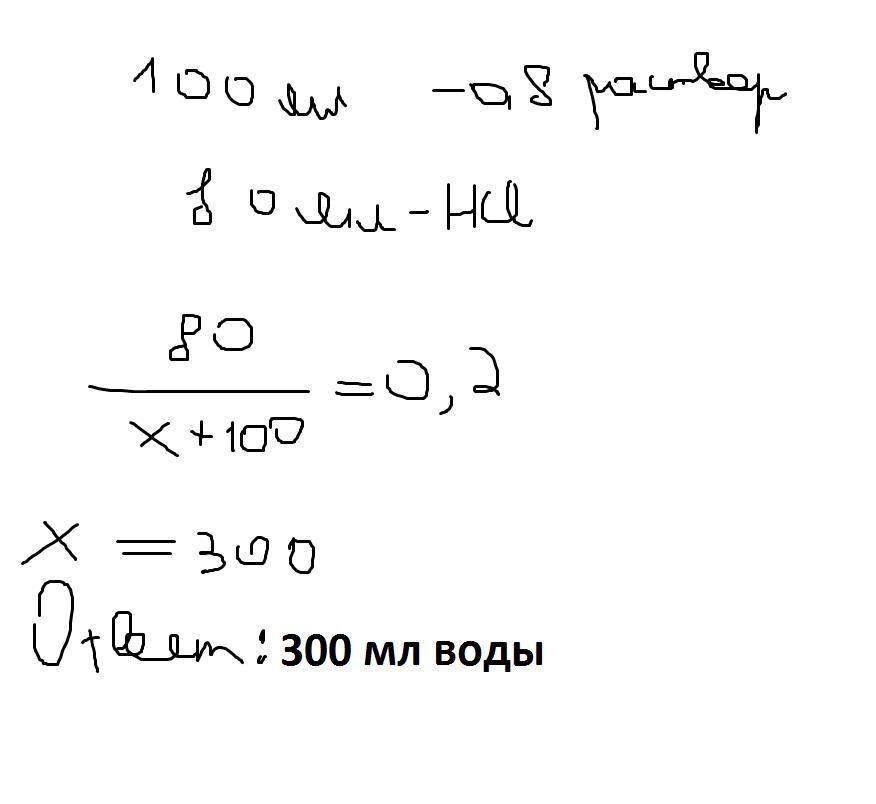 100 мл - 0,8 раствор
80 мл - HCl
80
x + 100
= 0,2
x = 300
Ответ: 300 мл воды